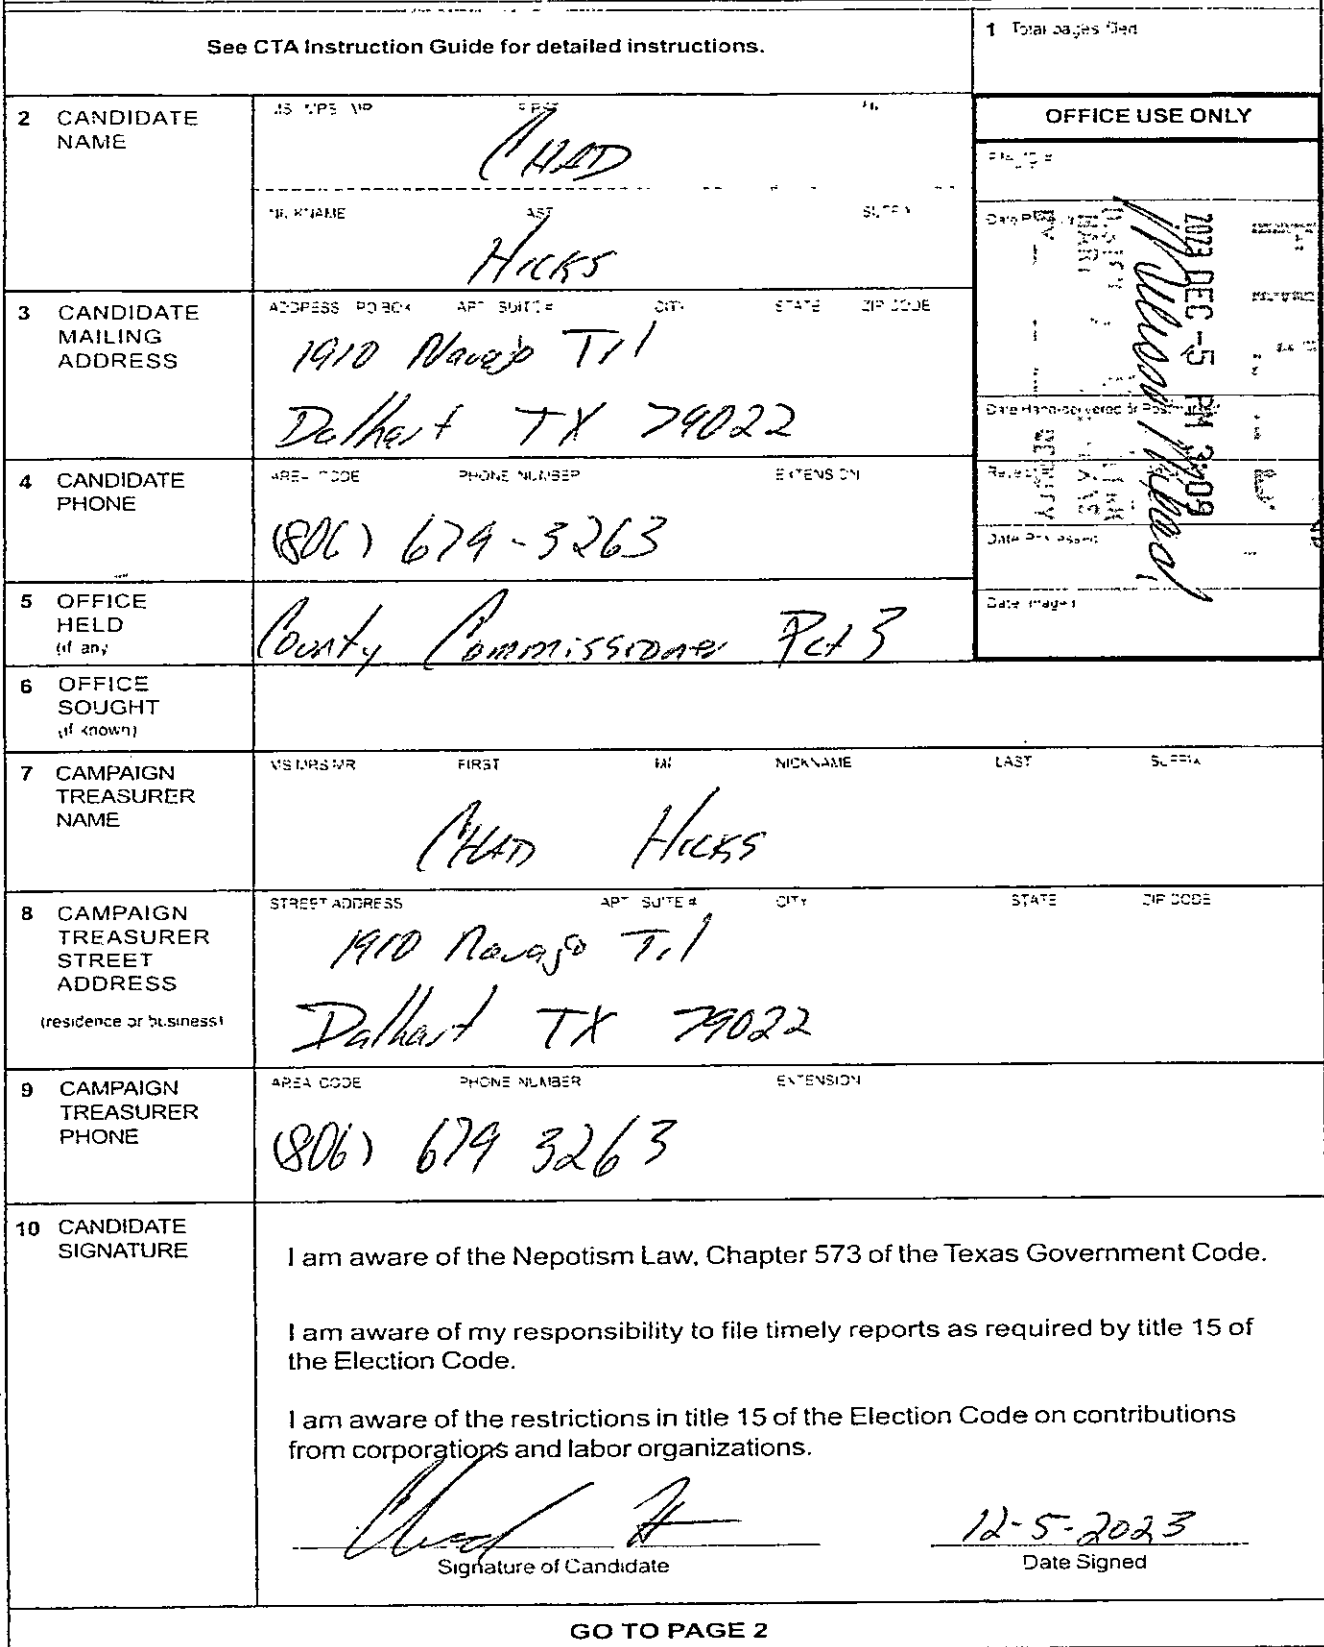 See CTA Instruction Guide for detailed instructions.
1 Total pages filed
2 CANDIDATE NAME
MS MRS MR FIRST MI
CHAD
NICKNAME LAST SUFFIX
HICKS
OFFICE USE ONLY
2023 DEC -5 PM 3:09
3 CANDIDATE MAILING ADDRESS
ADDRESS PO BOX APT SUITE # CITY STATE ZIP CODE
1910 Navajo Trl
Dalhart TX 79022
Date Hand-delivered or Postmarked
4 CANDIDATE PHONE
AREA CODE PHONE NUMBER EXTENSION
(806) 679-3263
Date Processed
5 OFFICE HELD (if any)
County Commissioner Pct 3
Date Imaged
6 OFFICE SOUGHT (if known)
7 CAMPAIGN TREASURER NAME
MS MRS MR FIRST MI NICKNAME LAST SUFFIX
CHAD HICKS
8 CAMPAIGN TREASURER STREET ADDRESS (residence or business)
STREET ADDRESS APT SUITE # CITY STATE ZIP CODE
1910 Navajo Trl
Dalhart TX 79022
9 CAMPAIGN TREASURER PHONE
AREA CODE PHONE NUMBER EXTENSION
(806) 679 3263
10 CANDIDATE SIGNATURE
I am aware of the Nepotism Law, Chapter 573 of the Texas Government Code.
I am aware of my responsibility to file timely reports as required by title 15 of
the Election Code.
I am aware of the restrictions in title 15 of the Election Code on contributions
from corporations and labor organizations.
12-5-2023
Signature of Candidate Date Signed
GO TO PAGE 2